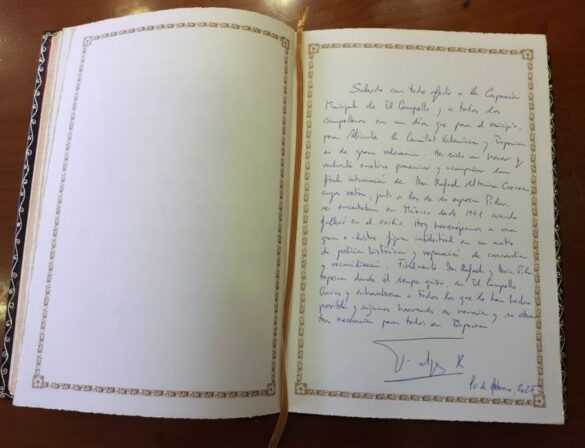 Saludo con todo afecto a la Corporación
Municipal de El Campello y a todos los
campelleros en un día que para el municipio,
para Alicante, la Comunitat Valenciana y España
es de gran valoración. Ha sido un honor y
emotivo presenciar y acompañar la
inhumación de Don Rafael Altamira Crevea,
cuyos restos, junto a los de su esposa Pilar,
se encontraban en México desde 1951 cuando
falleció en el exilio. Hoy homenajeamos a una
gran e ilustre figura intelectual en un acto
de justicia histórica y reparación, de concordia
y reconciliación. Finalmente Don Rafael y Doña Pilar
reposan donde él siempre quiso, en El Campello.
Gracias y enhorabuena a todos los que lo han hecho
posible y sigamos honrando su memoria y su obra
tan necesaria para todos en España.
10 de 2025